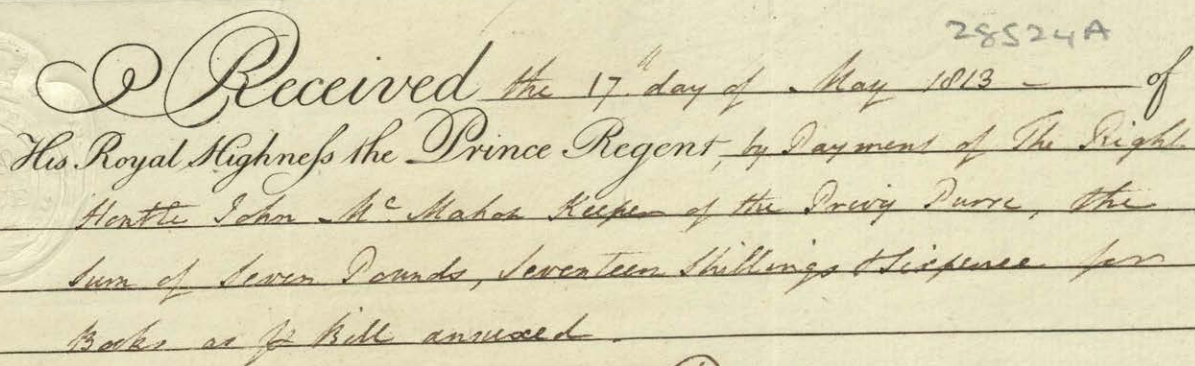 28524A
Received the 17th day of May 1813 - of
His Royal Highneſs the Prince Regent, by Payment of The Right
Honble John Mc Mahon Keeper of the Privy Purse, the
Sum of Seven Pounds, Seventeen Shillings & Sixpence for
Books as pr Bill annexed.